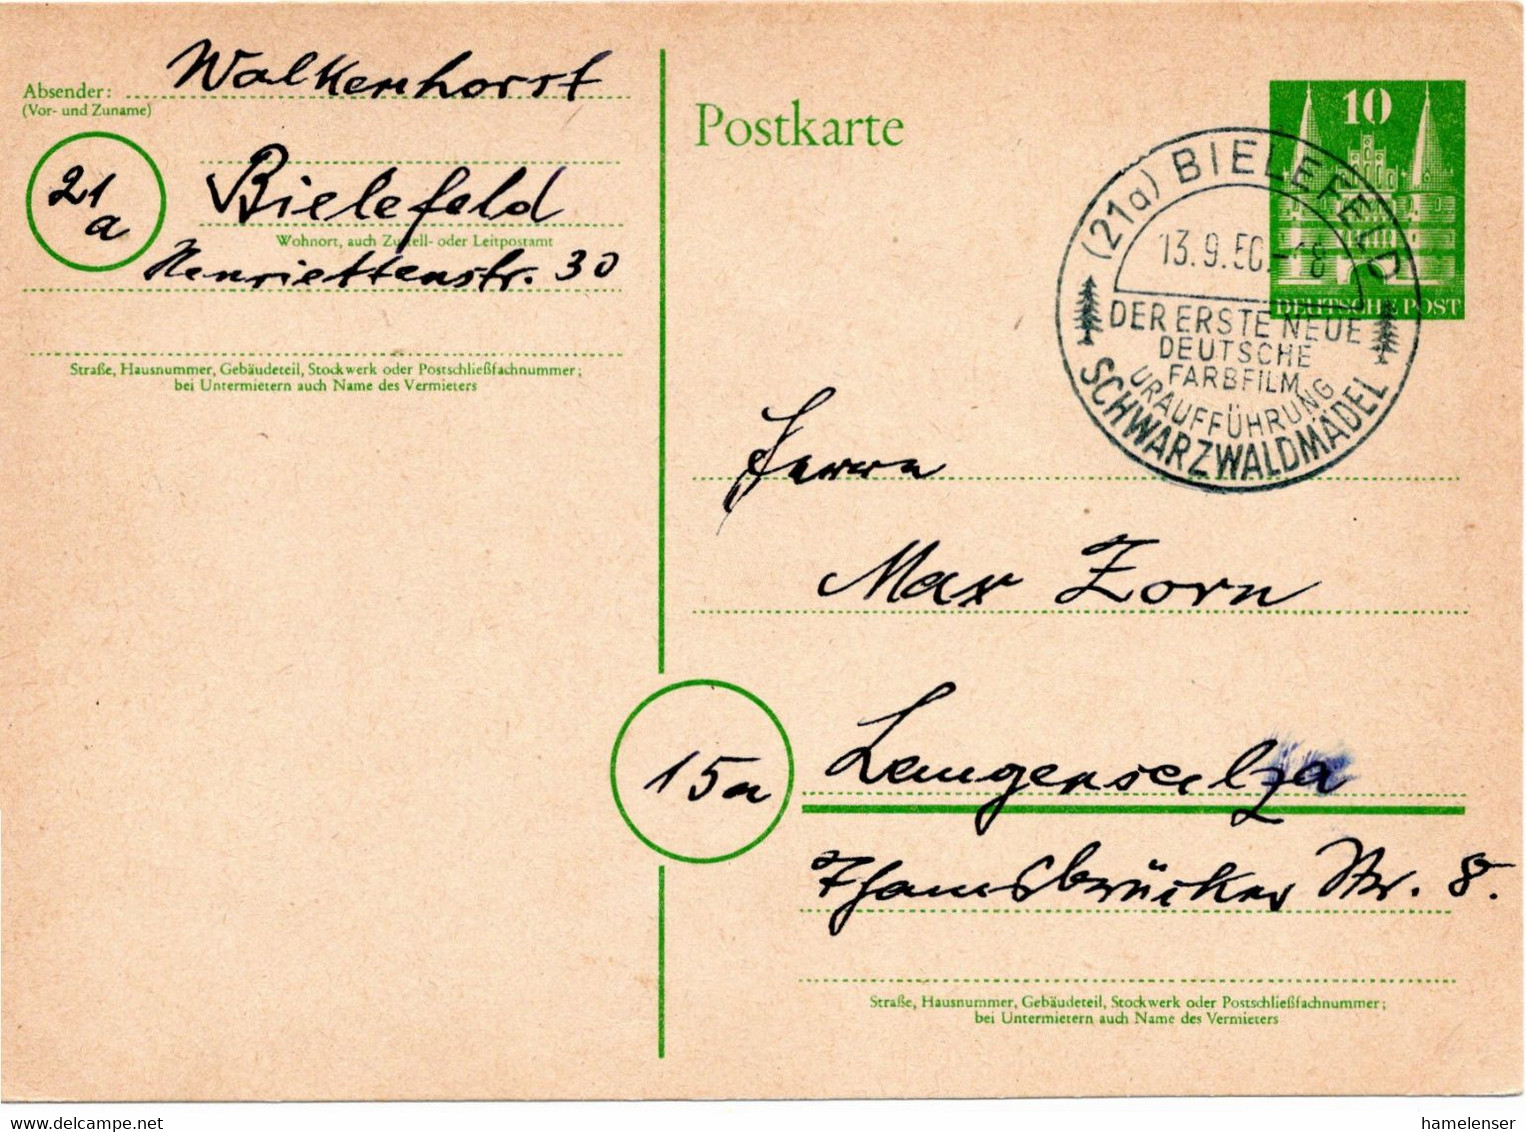 Absender: Walkenhorst
(Vor- und Zuname)
21
a
Bielefeld
Wohnort, auch Zustell- oder Leitpostamt
Henriettenstr. 30
Straße, Hausnummer, Gebäudeteil, Stockwerk oder Postschließfachnummer;
bei Untermietern auch Name des Vermieters
Postkarte
10
DEUTSCHE POST
(21a) BIELEFELD
13.9.50.-18
DER ERSTE NEUE
DEUTSCHE
FARBFILM
URAUFFÜHRUNG
SCHWARZWALDMÄDEL
Herrn
Max Zorn
15a
Langensalza
Thamsbrücker Str. 8.
Straße, Hausnummer, Gebäudeteil, Stockwerk oder Postschließfachnummer;
bei Untermietern auch Name des Vermieters
www.delcampe.net
hamelenser